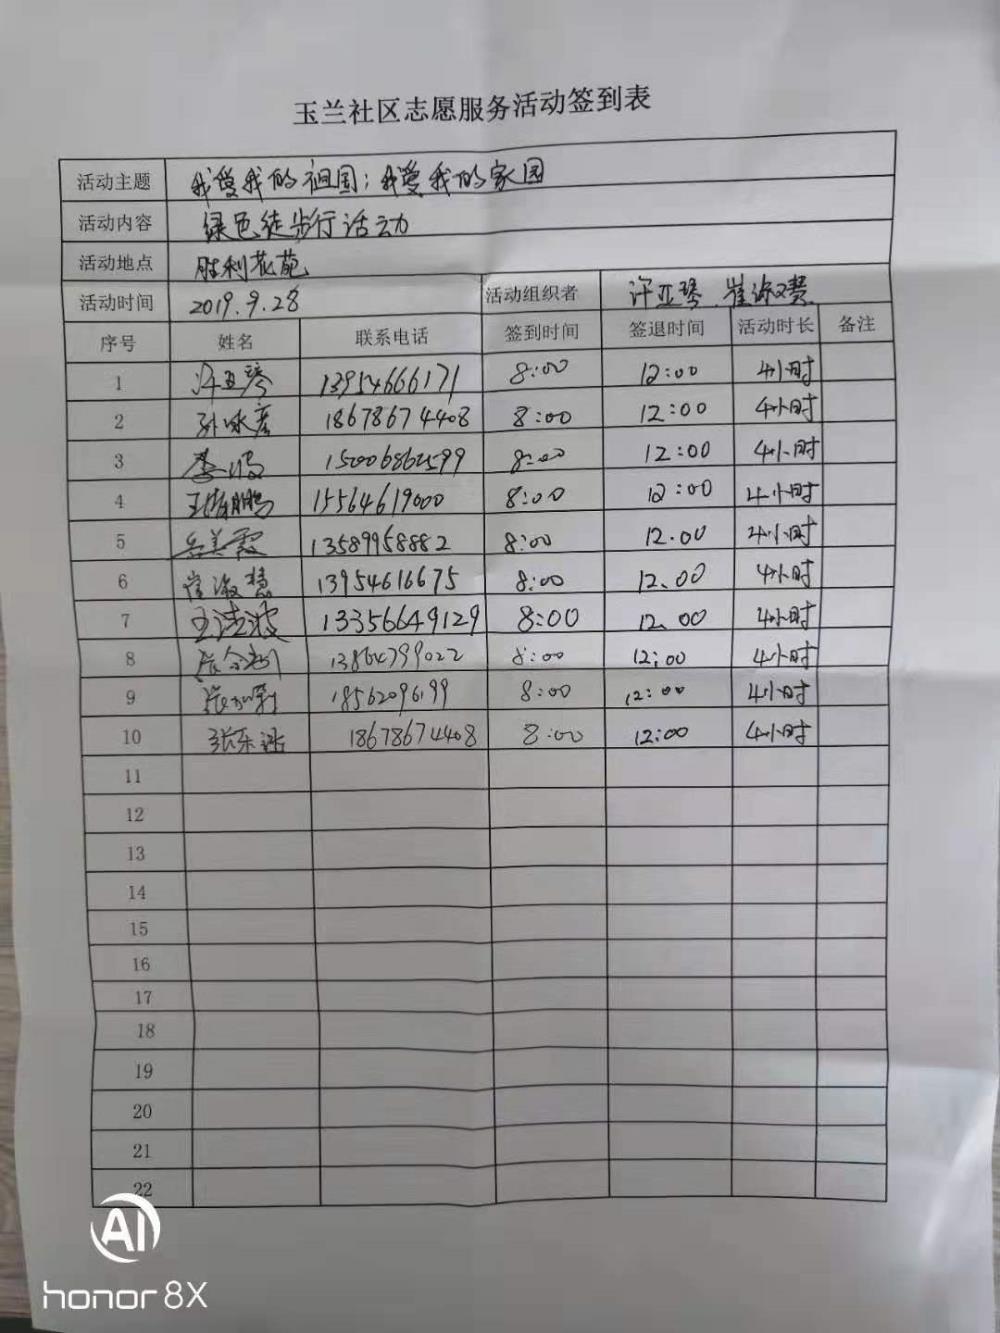 玉兰社区志愿服务活动签到表
活动主题 我爱我的祖国；我爱我的家园
活动内容 绿色徒步行活动
活动地点 胜利花苑
活动时间 2019.9.28 活动组织者 许亚琴、崔淑慧
序号 姓名 联系电话 签到时间 签退时间 活动时长 备注
1 许亚琴 13954666171 8:00 12:00 4小时
2 孙咏彦 18678674408 8:00 12:00 4小时
3 8:00 12:00 4小时
4 15564619000 8:00 12:00 4小时
5 岳美霞 13589958882 8:00 12.00 4小时
6 崔淑慧 13954616675 8:00 12.00 4小时
7 王洁波 13356649129 8:00 12.00 4小时
8 13864799022 8:00 12:00 4小时
9 18562096199 8:00 12:00 4小时
10 18678674408 8:00 12:00 4小时
11
12
13
14
15
16
17
18
19
20
21
22
AI
honor 8X